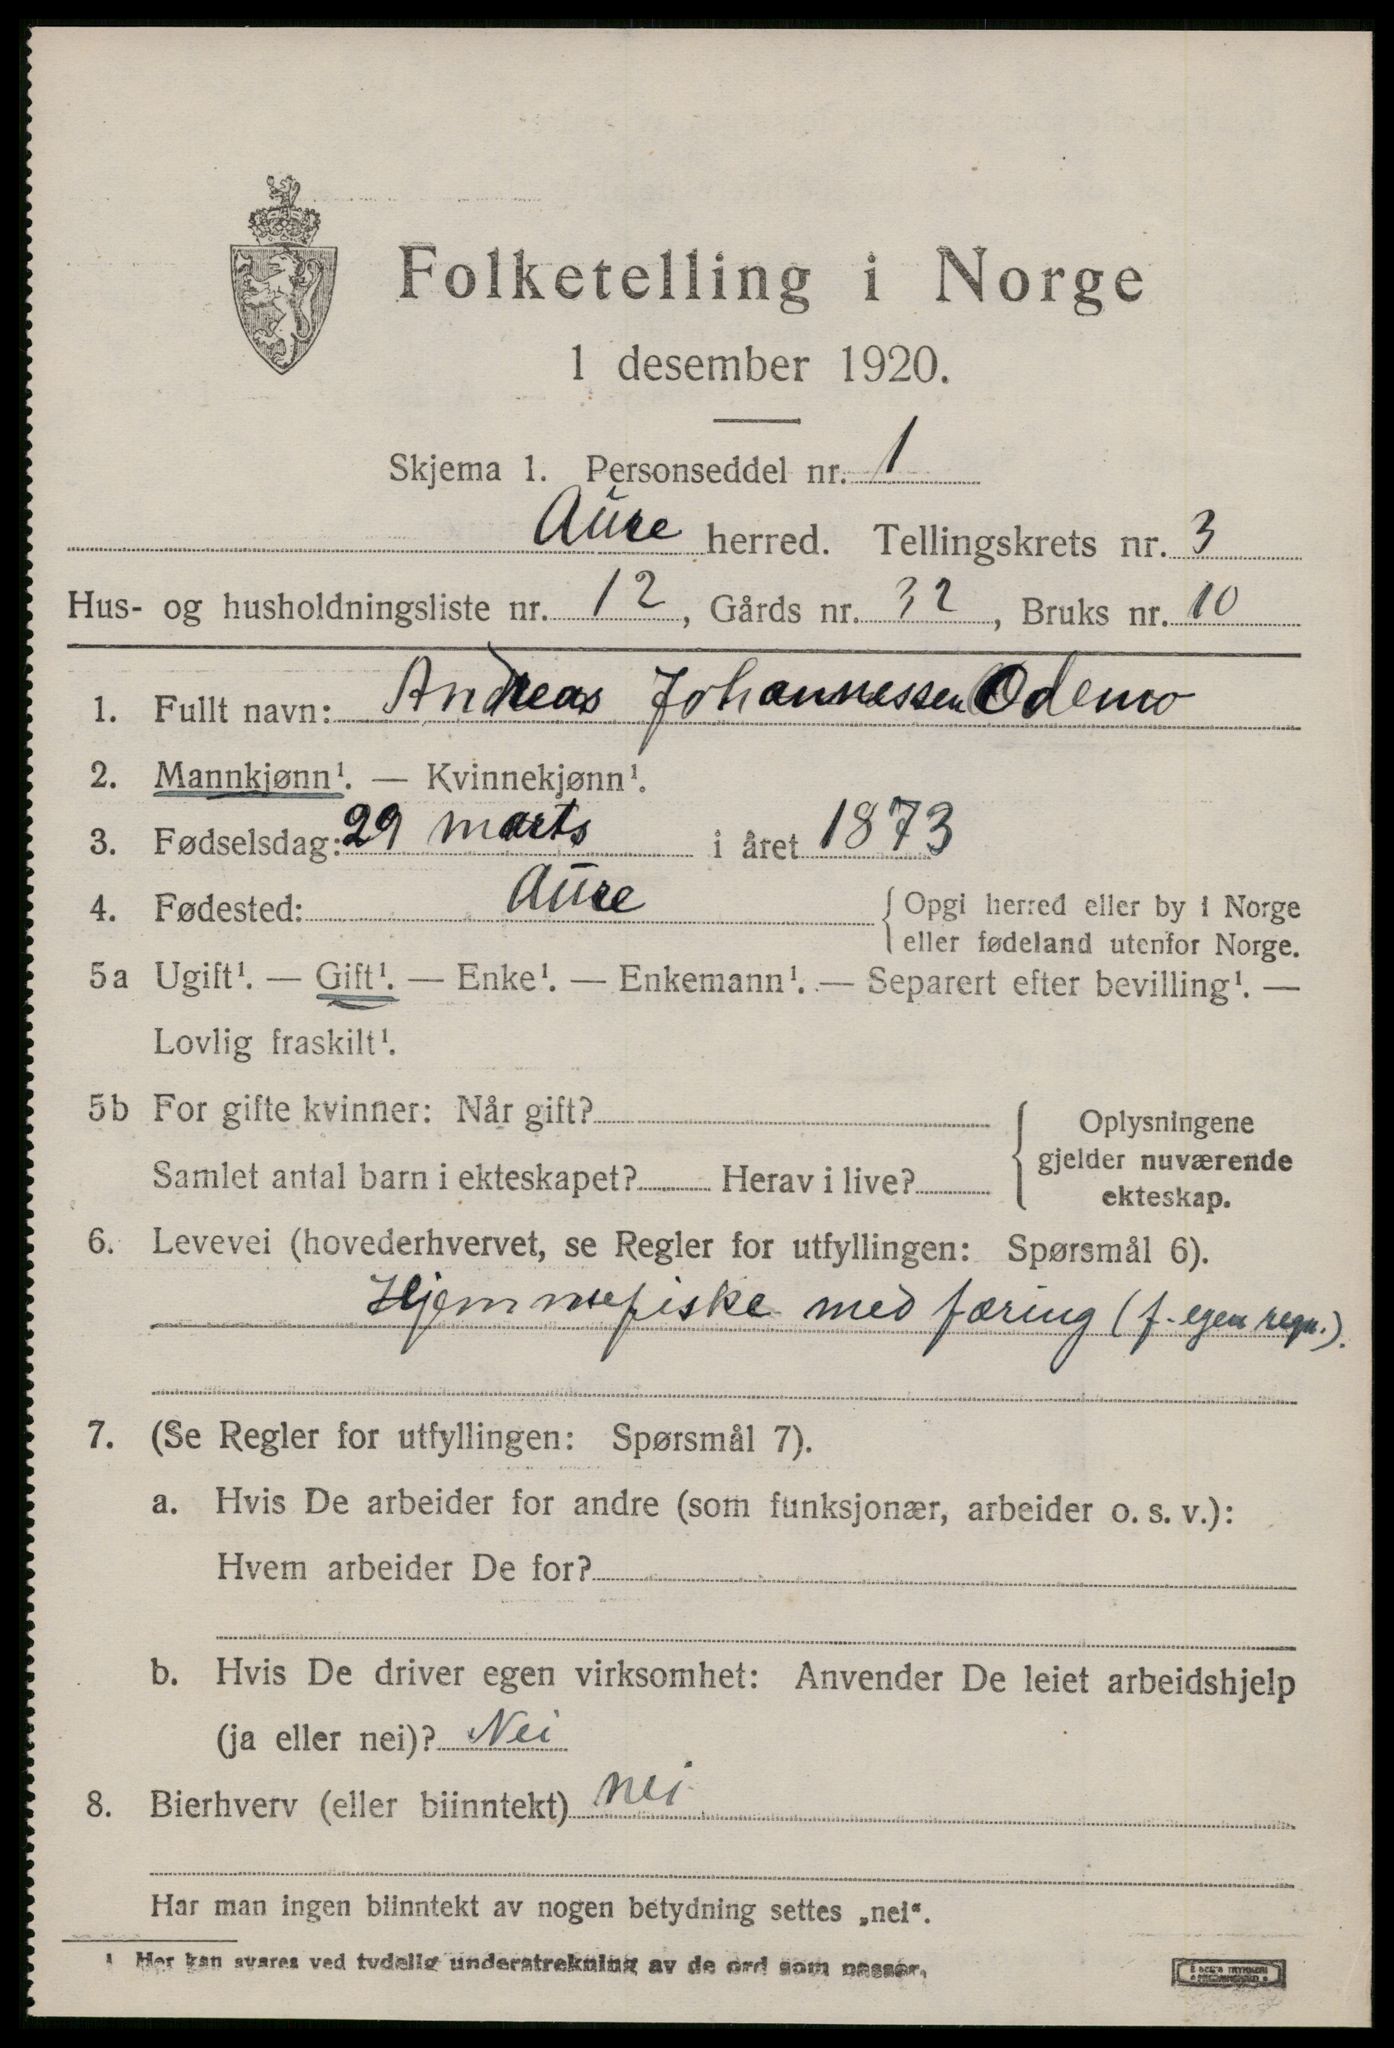 Folketelling i Norge
1 desember 1920.
Skjema 1. Personseddel nr. 1
Aure herred. Tellingskrets nr. 3
Hus- og husholdningsliste nr. 12, Gårds nr. 32, Bruks nr. 10
1. Fullt navn: Andreas Johannessen Odemo
2. Mannkjønn¹. — Kvinnekjønn¹.
3. Fødselsdag: 29 marts i året 1873
4. Fødested: Aure { Opgi herred eller by i Norge
eller fødeland utenfor Norge.
5a Ugift¹. — Gift¹. — Enke¹. — Enkemann¹. — Separert efter bevilling¹. —
Lovlig fraskilt¹.
5b For gifte kvinner: Når gift?
Samlet antal barn i ekteskapet? Herav i live?
Oplysningene
gjelder nuværende
ekteskap.
6. Levevei (hovederhvervet, se Regler for utfyllingen: Spørsmål 6).
Hjemmefiske med færing (f. egen regn.).
7. (Se Regler for utfyllingen: Spørsmål 7).
a. Hvis De arbeider for andre (som funksjonær, arbeider o. s. v.):
Hvem arbeider De for?
b. Hvis De driver egen virksomhet: Anvender De leiet arbeidshjelp
(ja eller nei)? Nei
8. Bierhverv (eller biinntekt) nei
Har man ingen biinntekt av nogen betydning settes „nei“.
¹ Her kan svares ved tydelig understrekning av de ord som passer.